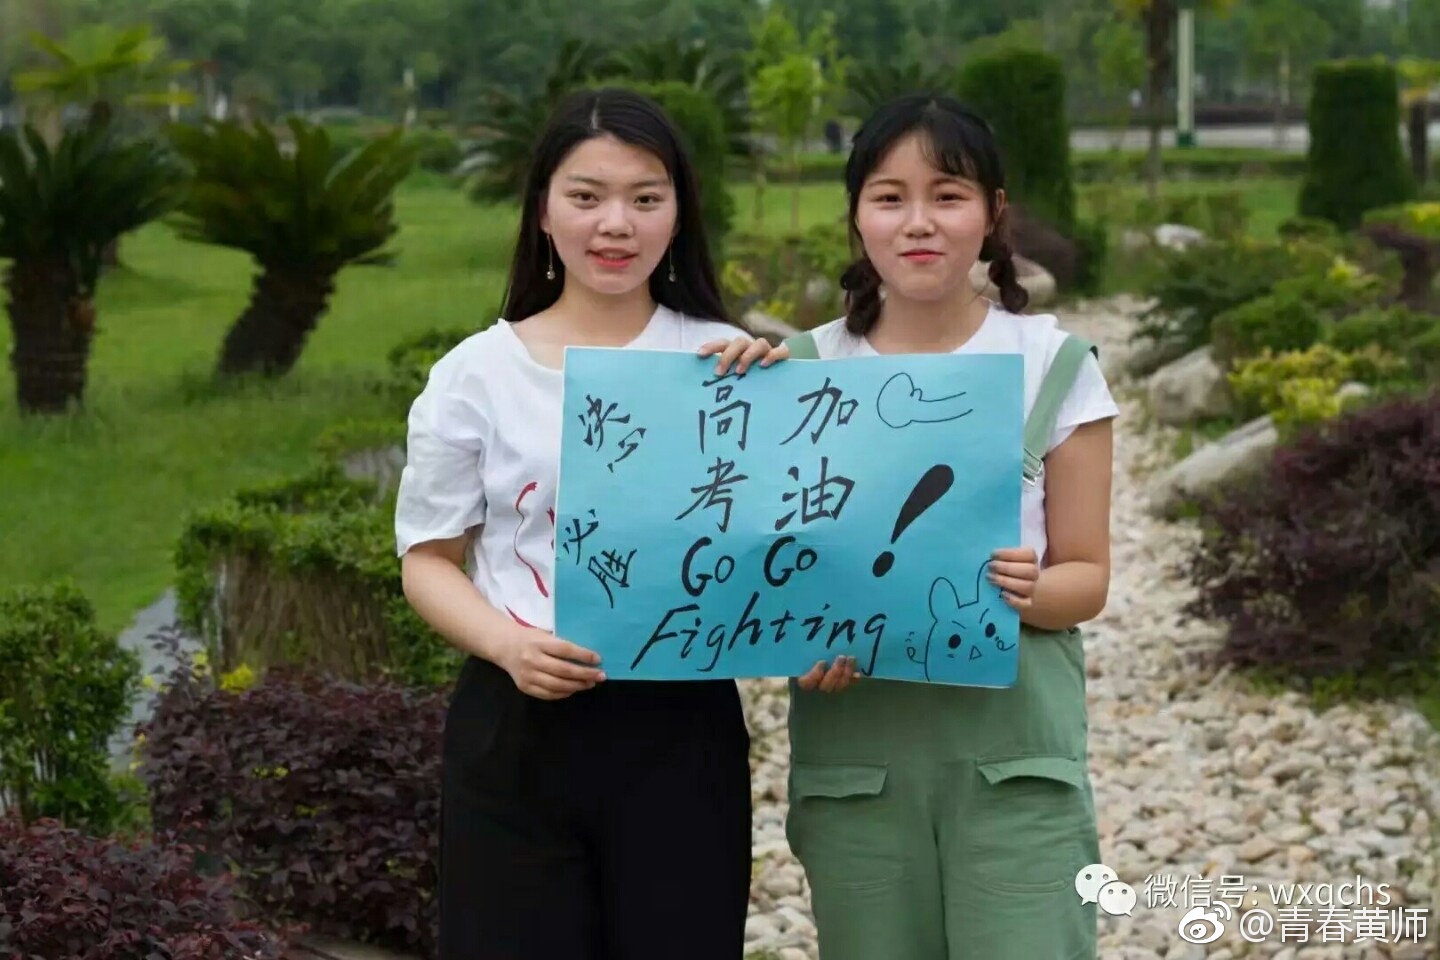 决心
必胜
高考
加油!
Go Go
Fighting
微信号: wxqchs
@青春黄师